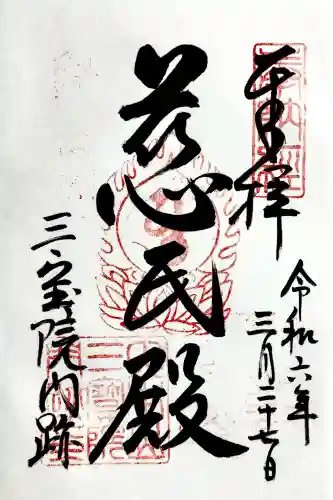 奉拝
令和六年
三月二十七日
慈氏殿
三宝院門跡